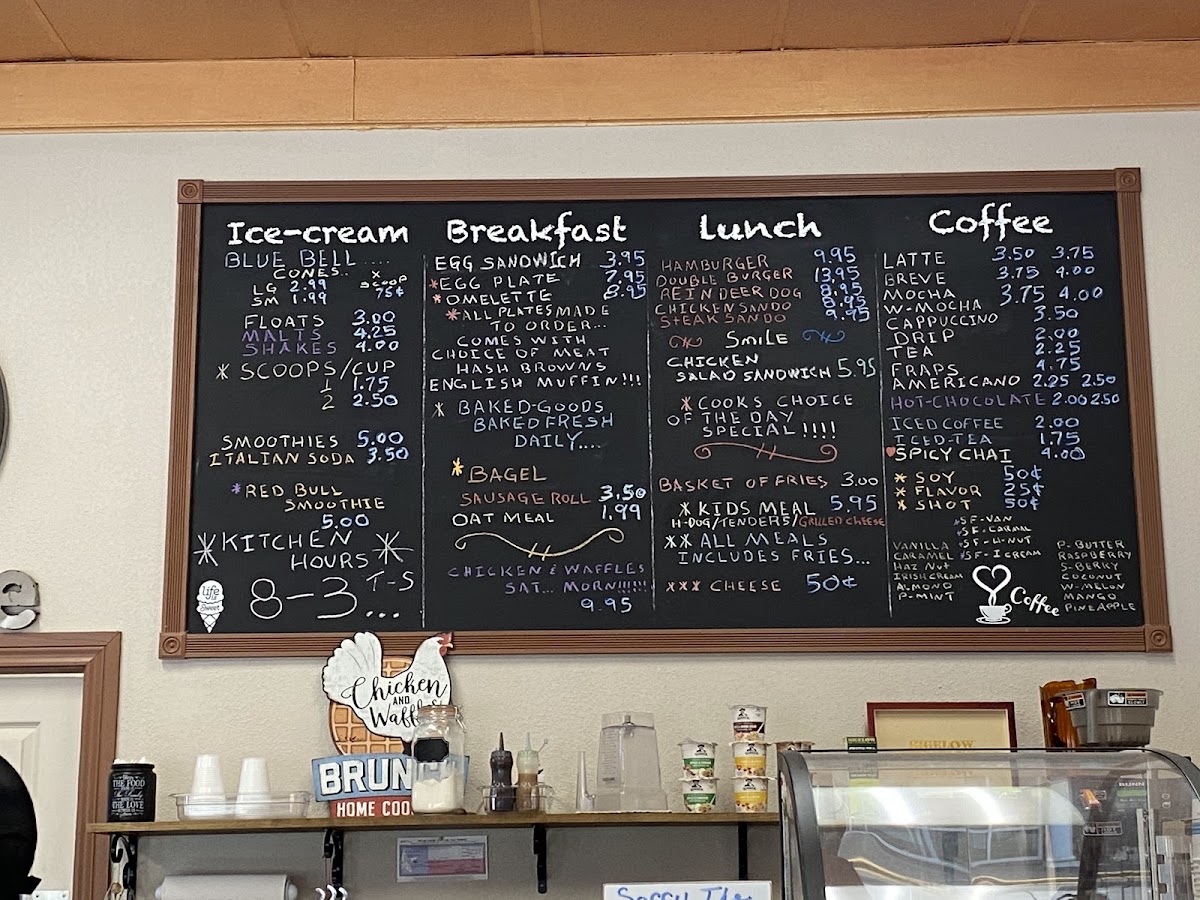 Ice-cream
BLUE BELL ....
CONES.. X SCOOP
LG 2.99 75¢
SM 1.99
FLOATS 3.00
MALTS 4.25
SHAKES 4.00
* SCOOPS/CUP
1 1.75
2 2.50
SMOOTHIES 5.00
ITALIAN SODA 3.50
*RED BULL
SMOOTHIE
5.00
*KITCHEN
HOURS*
8-3 T-S
...
life
is
Sweet
Breakfast
EGG SANDWICH 3.95
*EGG PLATE 7.95
*OMELETTE 8.95
*ALL PLATES MADE
TO ORDER...
COMES WITH
CHOICE OF MEAT
HASH BROWNS
ENGLISH MUFFIN!!!
* BAKED-GOODS
BAKED FRESH
DAILY....
*BAGEL
SAUSAGE ROLL 3.50
OAT MEAL 1.99
CHICKEN & WAFFLES
SAT... MORN!!!!!
9.95
Lunch
HAMBURGER 9.95
DOUBLE BURGER 13.95
REINDEER DOG 8.95
CHICKEN SANDO 8.95
STEAK SANDO 9.95
SMILE
CHICKEN
SALAD SANDWICH 5.95
*COOKS CHOICE
OF THE DAY
SPECIAL!!!!
BASKET OF FRIES 3.00
*KIDS MEAL 5.95
H-DOG/TENDERS/GRILLED CHEESE
** ALL MEALS
INCLUDES FRIES...
*** CHEESE 50¢
Coffee
LATTE 3.50 3.75
BREVE 3.75 4.00
MOCHA 3.75 4.00
W-MOCHA
CAPPUCCINO 3.50
DRIP 2.00
TEA 2.25
FRAPS 4.75
AMERICANO 2.25 2.50
HOT-CHOCOLATE 2.00 2.50
ICED COFFEE 2.00
ICED-TEA 1.75
SPICY CHAI 4.00
* SOY 50¢
* FLAVOR 25¢
* SHOT 50¢
*SF-VAN
*SF-CARML
*SF-H-NUT
*SF-I CREAM
VANILLA
CARAMEL
HAZ NUT
IRISH CREAM
A-MOND
P-MINT
P-BUTTER
RASPBERRY
S-BERRY
COCONUT
W-MELON
MANGO
PINEAPPLE
Coffee
Chicken
AND
Waffles
BRUN
HOME COO
THE FOOD
THE LOVE
BIGELOW
Sorry The